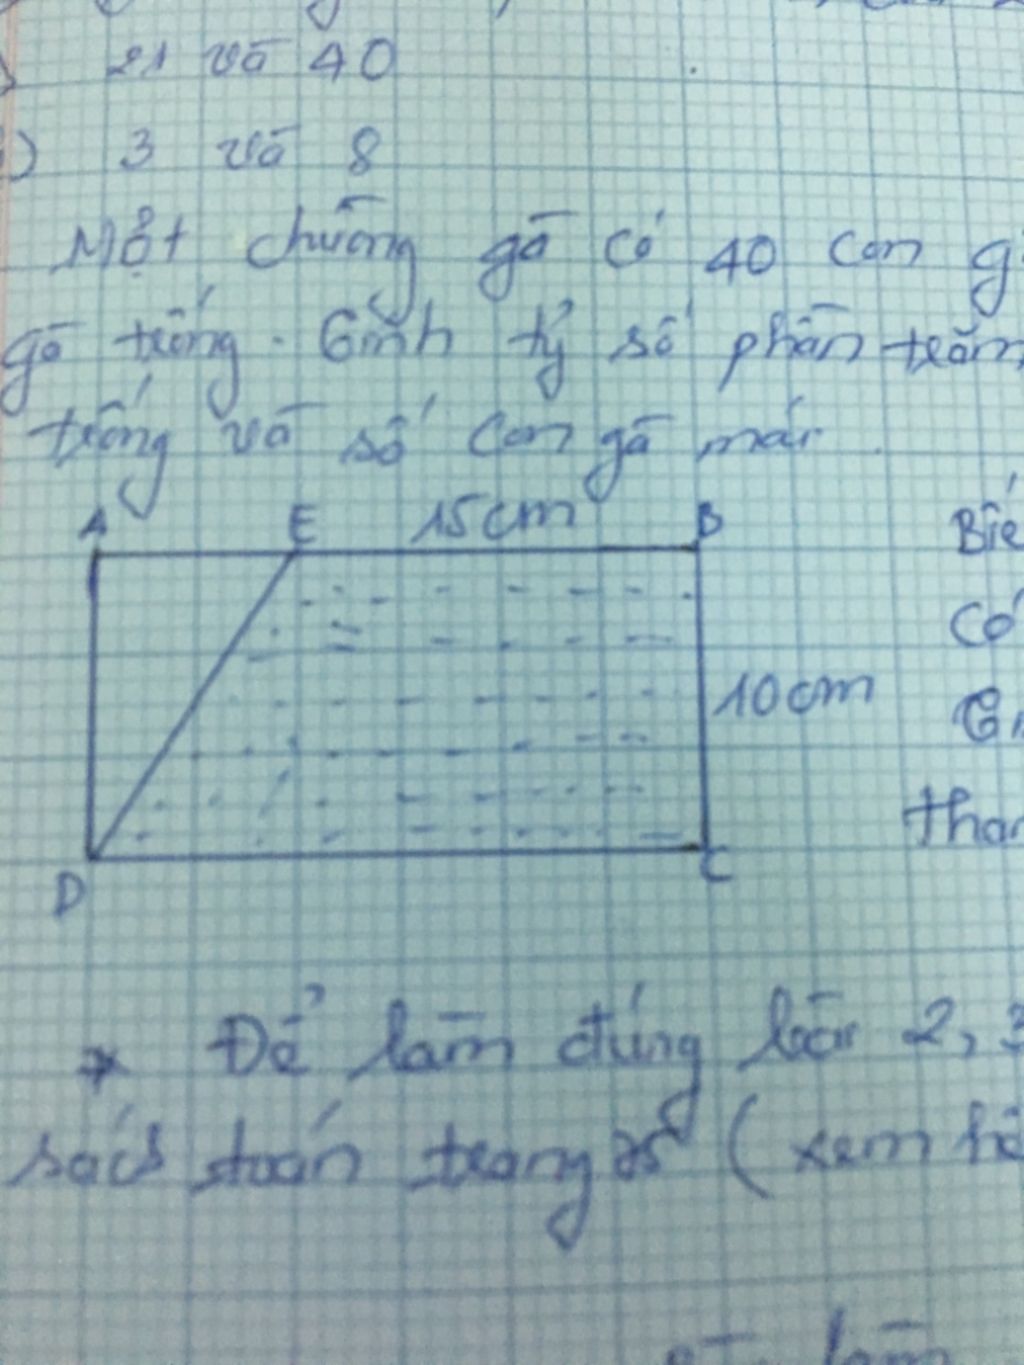 21 và 40
3 và 8
Một chuồng gà có 40 con
gà trống. Tính tỷ số phần trăm
trống và số con gà mái.
A E 15cm B
10cm
D C
* Để làm đúng bài 2, 3
sách toán trang (xem
làm